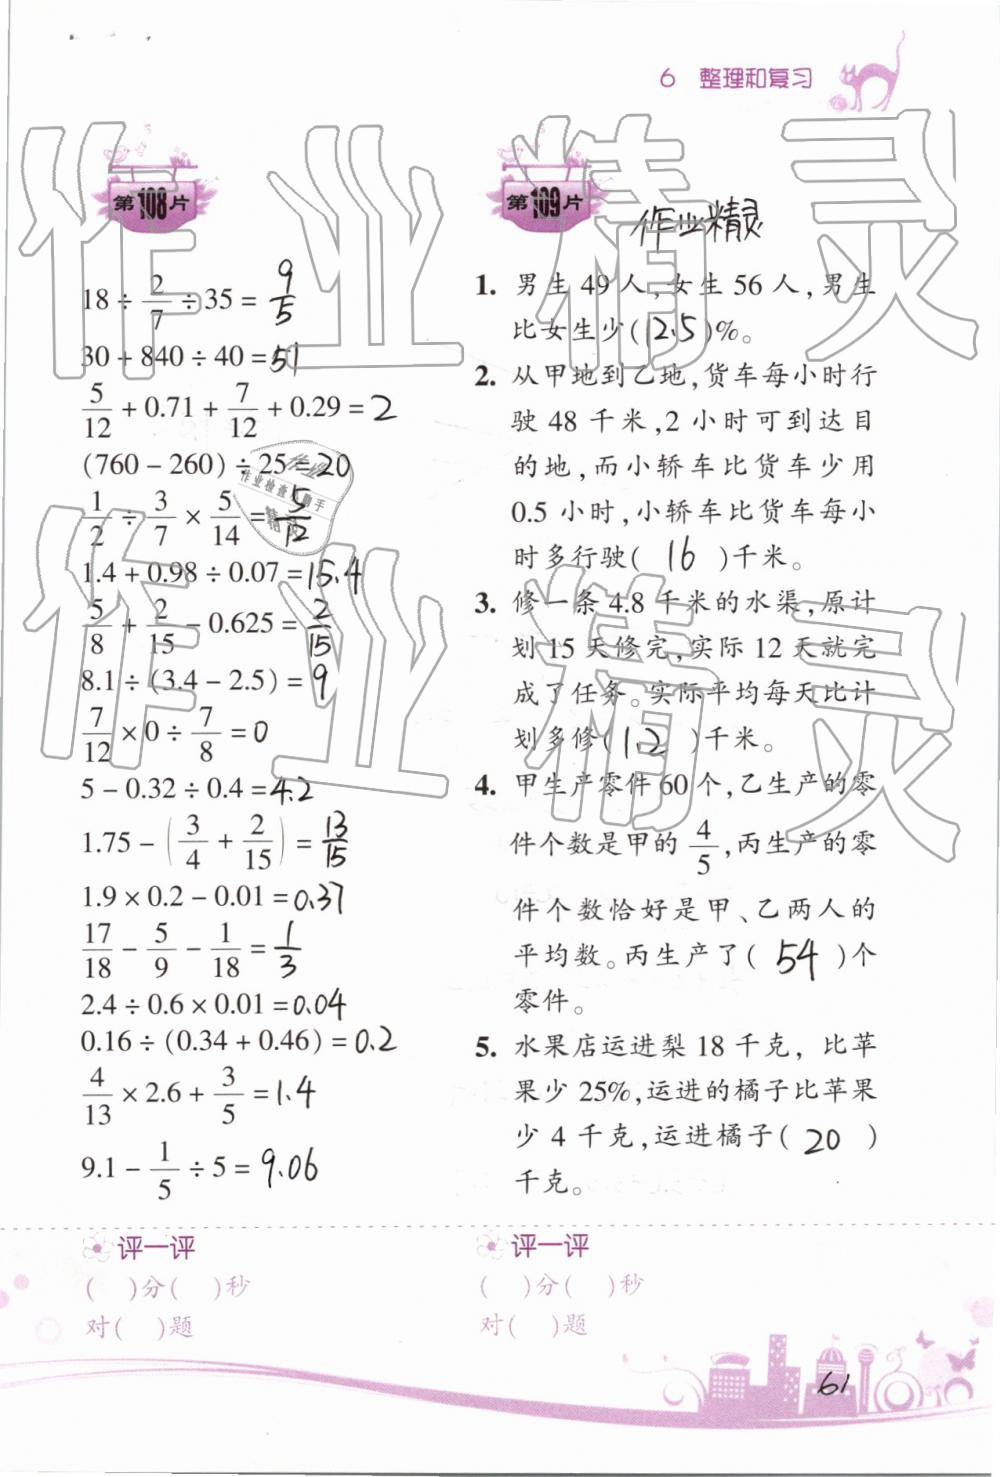 6 整理和复习
第108片
18÷2/7÷35=9/5
30+840÷40=51
5/12+0.71+7/12+0.29=2
(760-260)÷25=20
1/2÷3/7×5/14=5/12
1.4+0.98÷0.07=15.4
5/8+2/15-0.625=2/15
8.1÷(3.4-2.5)=9
7/12×0÷7/8=0
5-0.32÷0.4=4.2
1.75-(3/4+2/15)=13/15
1.9×0.2-0.01=0.37
17/18-5/9-1/18=1/3
2.4÷0.6×0.01=0.04
0.16÷(0.34+0.46)=0.2
4/13×2.6+3/5=1.4
9.1-1/5÷5=9.06
评一评
( )分( )秒
对( )题
第109片
作业精灵
1. 男生49人,女生56人,男生
比女生少(12.5)%。
2. 从甲地到乙地,货车每小时行
驶48千米,2小时可到达目
的地,而小轿车比货车少用
0.5小时,小轿车比货车每小
时多行驶(16)千米。
3. 修一条4.8千米的水渠,原计
划15天修完,实际12天就完
成了任务。实际平均每天比计
划多修(1.2)千米。
4. 甲生产零件60个,乙生产的零
件个数是甲的4/5,丙生产的零
件个数恰好是甲、乙两人的
平均数。丙生产了(54)个
零件。
5. 水果店运进梨18千克,比苹
果少25%,运进的橘子比苹果
少4千克,运进橘子(20)
千克。
评一评
( )分( )秒
对( )题
61
作业精灵
作业精灵
作业检查小助手